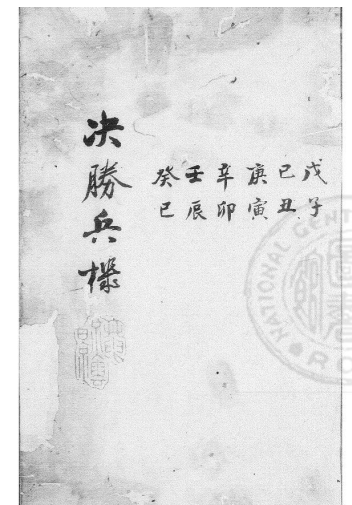 戊子
己丑
庚寅
辛卯
壬辰
癸巳
决勝兵機
NATIONAL CENT
RO